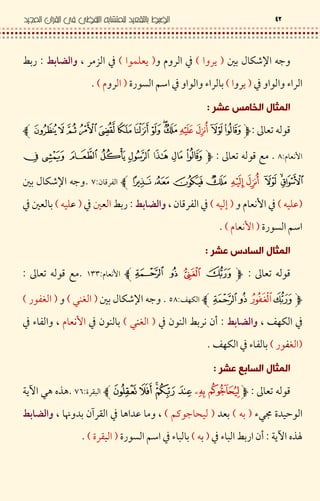 ٤٢ الضبط بالتقعيد للمتشابه اللفظي في القرآن المجيد
وجه الإشكال بين ( يروا ) في الروم و( يعلموا ) في الزمر ، والضابط : ربط
الراء والواو في ( يروا ) بالراء والواو في اسم السورة ( الروم ) .
المثال الخامس عشر :
قوله تعالى : ﴿ وَقَالُوا۟ لَوْلَآ أُنزِلَ عَلَيْهِ مَلَكٌ ۖ وَلَوْ أَنزَلْنَا مَلَكًا لَّقُضِىَ ٱلْأَمْرُ ثُمَّ لَا يُنظَرُونَ ﴾
الأنعام:٨ . مع قوله تعالى : ﴿ وَقَالُوا۟ مَالِ هَٰذَا ٱلرَّسُولِ يَأْكُلُ ٱلطَّعَامَ وَيَمْشِى فِى
ٱلْأَسْوَاقِ ۙ لَوْلَآ أُنزِلَ إِلَيْهِ مَلَكٌ فَيَكُونَ مَعَهُۥ نَذِيرًا ﴾ الفرقان:٧ .وجه الإشكال بين
(عليه ) في الأنعام و ( إليه ) في الفرقان ، والضابط : ربط العين في ( عليه ) بالعين في
اسم السورة ( الأنعام ) .
المثال السادس عشر :
قوله تعالى : ﴿ وَرَبُّكَ ٱلْغَنِىُّ ذُو ٱلرَّحْمَةِ ﴾ الأنعام:١٣٣ .مع قوله تعالى :
﴿ وَرَبُّكَ ٱلْغَفُورُ ذُو ٱلرَّحْمَةِ ﴾ الكهف:٥٨ . وجه الإشكال بين ( الغني ) و ( الغفور )
في الكهف ، والضابط : أن نربط النون في ( الغني ) بالنون في الأنعام ، والفاء في
(الغفور ) بالفاء في الكهف .
المثال السابع عشر :
قوله تعالى : ﴿ لِيُحَآجُّوكُم بِهِۦ عِندَ رَبِّكُمْ ۚ أَفَلَا تَعْقِلُونَ ﴾ البقرة:٧٦ .هذه هي الآية
الوحيدة مجيء ( به ) بعد ( ليحاجوكم ) ، وما عداها في القرآن بدونها ، والضابط
لهذه الآية : أن اربط الباء في ( به ) بالباء في اسم السورة ( البقرة ) .